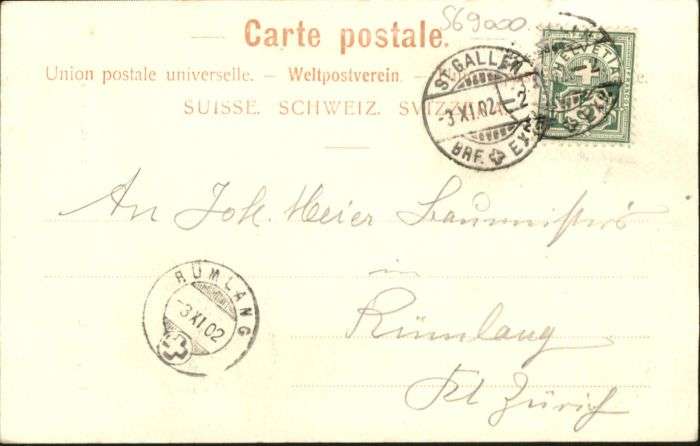 569000
Carte postale.
Union postale universelle. – Weltpostverein. –
SUISSE. SCHWEIZ. SVIZZERA.
ST. GALLEN
-3 XI.02
BRF. EXP.
HELVETIA
An Joh. Meier Baumeister's
in
Rümlang
Kt Zürich
RÜMLANG
-3 XI.02